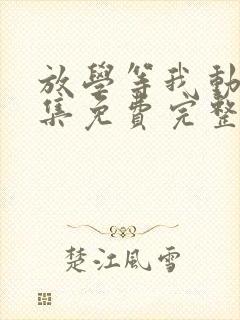 放學等我動
集免費完整
楚江風雪